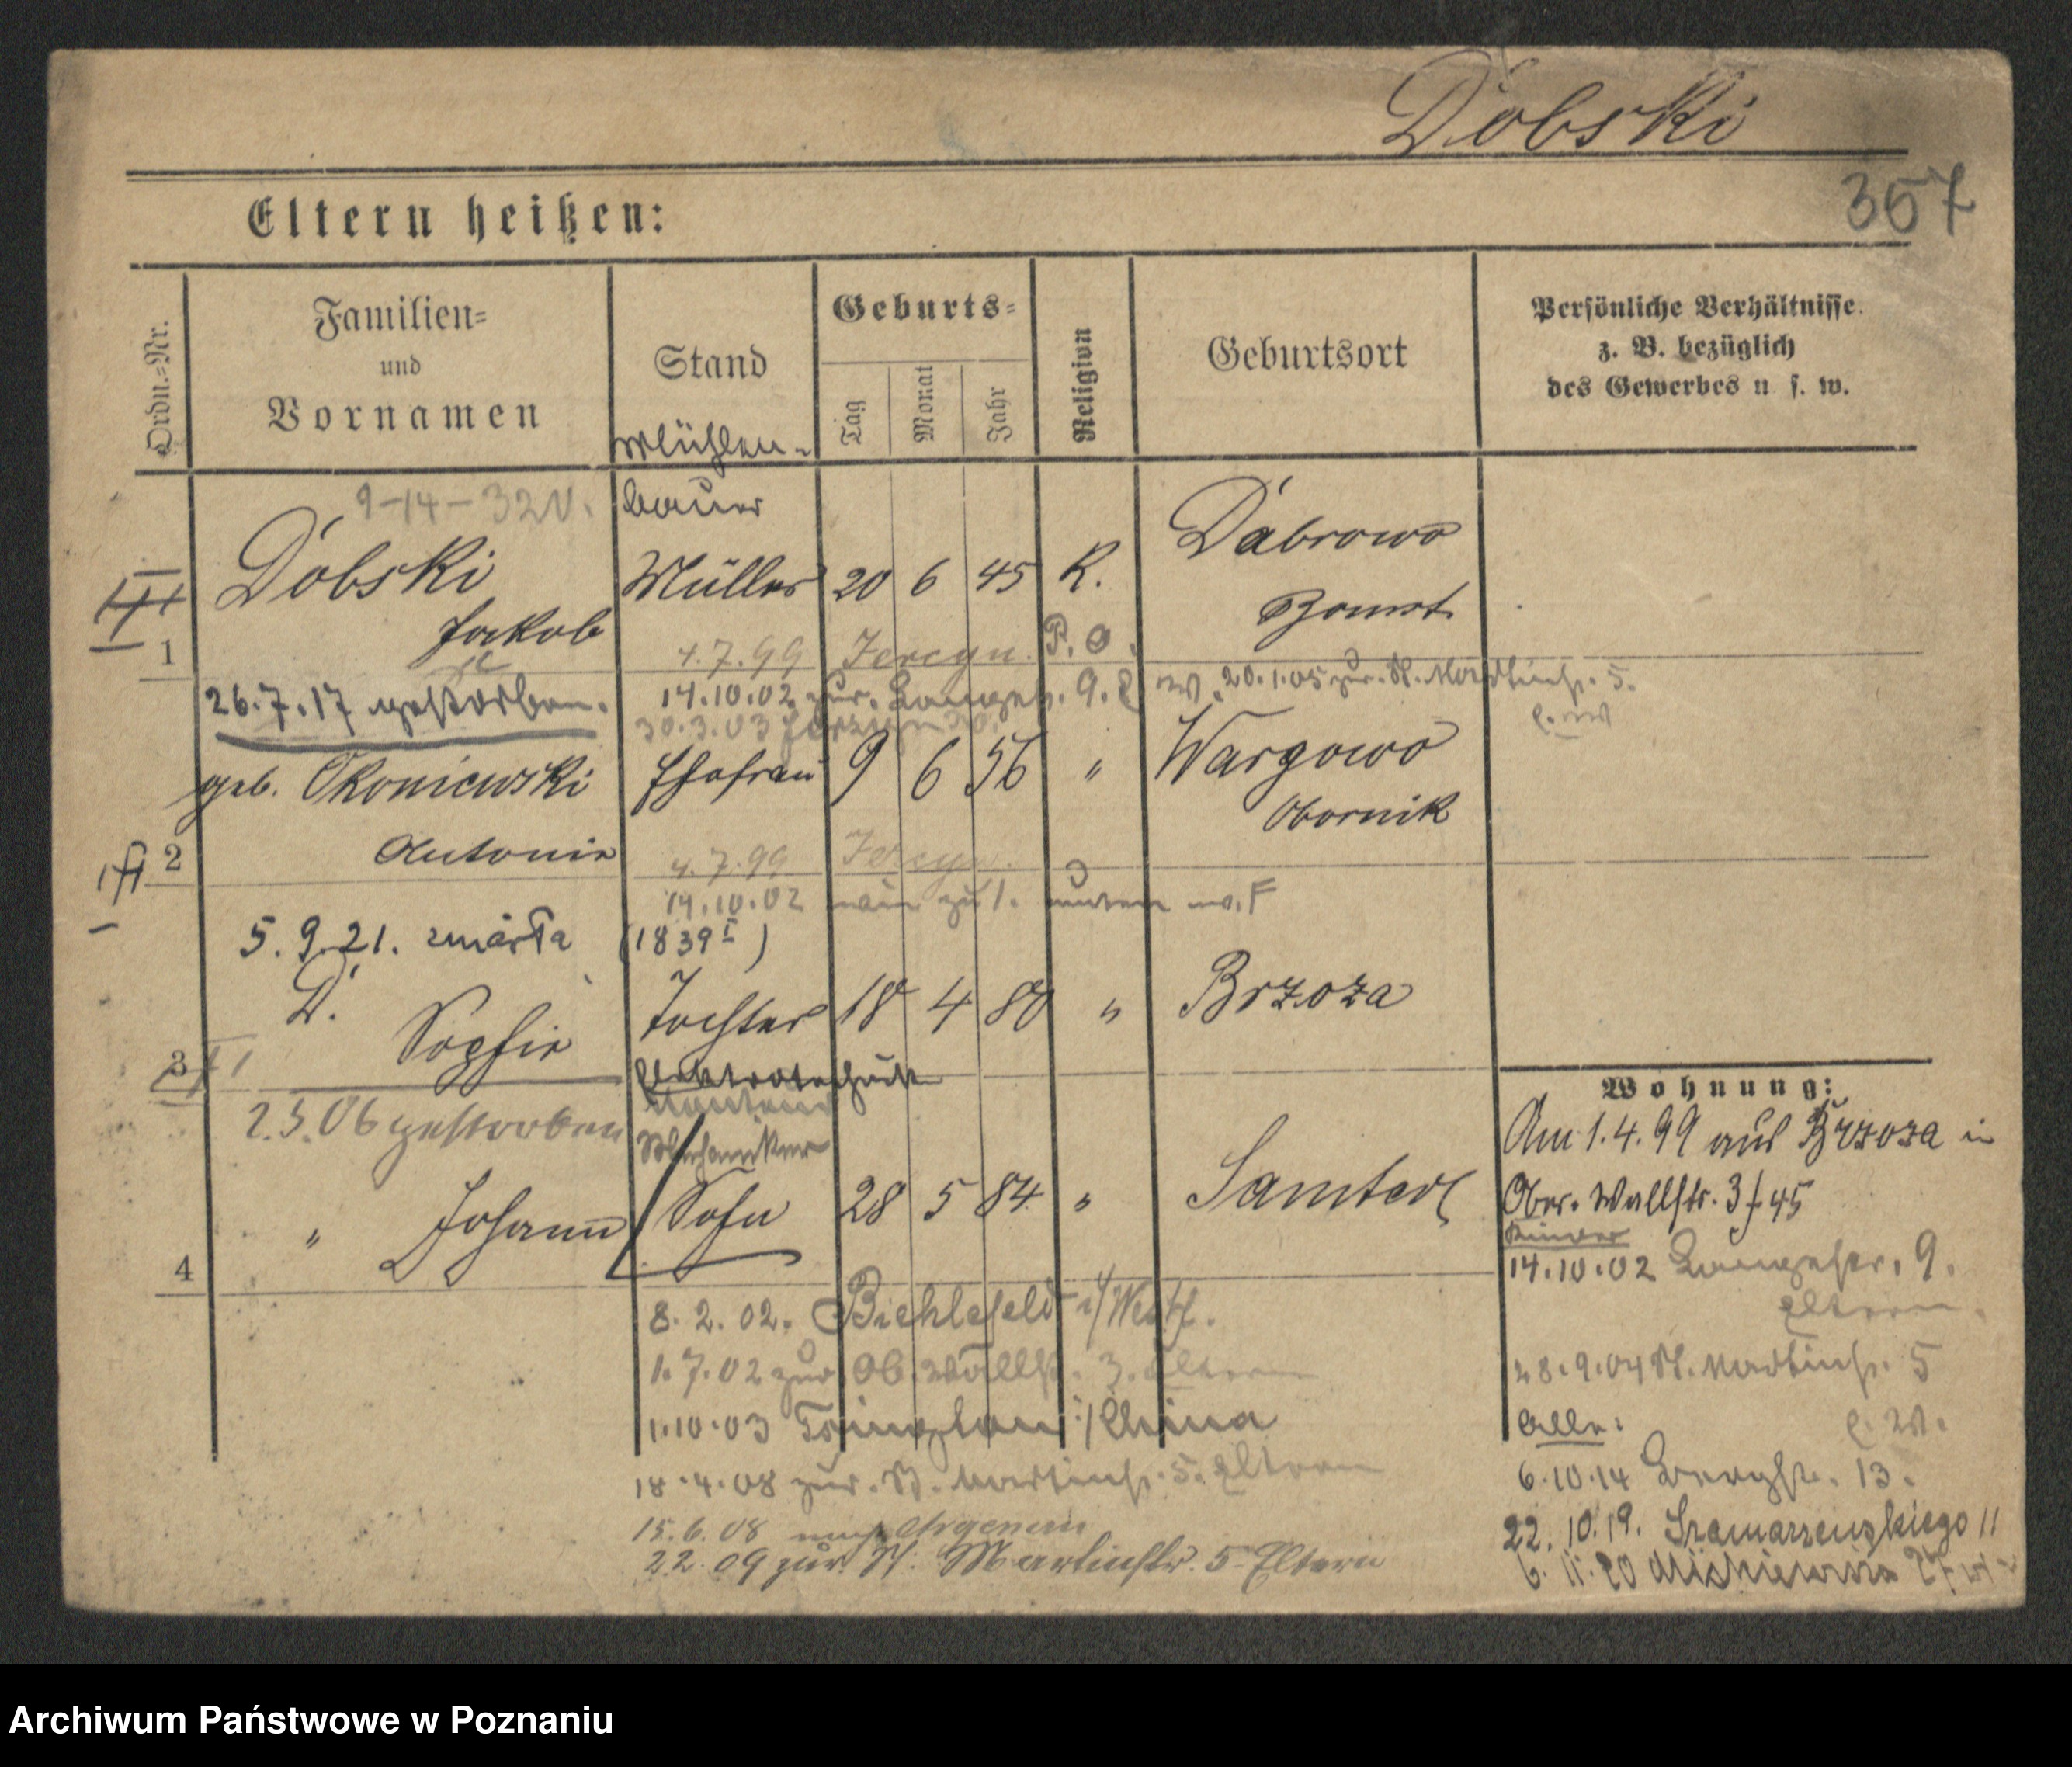 Dobski
357
Eltern heißen:
Ordn.=Nr.
Familien=
und
Vornamen
Stand
Geburts=
Tag
Monat
Jahr
Religion
Geburtsort
Persönliche Verhältnisse
z. B. bezüglich
des Gewerbes u. s. w.
Mühlen-
9-14-32
bauer
Dobski
Jakob
Müller 20 6 45 K.
Dabrowo
Bomst
1
4.7.99
26.7.17 gestorben.
14.10.02 zur. Langestr. 9.
20.1.05 zur. St. Martinstr. 5.
30.3.03
geb. Okoniewski
Antonie
Ehefrau 9 6 56 "
Wargowo
Obornik
2
4.7.99
14.10.02 zu 1.
5.9.21. zmarła (1839 I)
D. Sophie
Tochter 18 4 80 "
Brzoza
3
Elektrotechnik
2.5.06 gestorben
Mechaniker
" Johann
Sohn 28 5 84 "
Samter
4
8.2.02. Biehlefeld i/Westf.
1.7.02 zur Ob. Wallstr. 3. Eltern
1.10.03 Tsingtau i/China
18.4.08 zur. St. Martinstr. 5. Eltern
15.6.08 nach Argenau
22.09 zur. St. Martinstr. 5 Eltern
Wohnung:
Am 1.4.99 aus Brzoza in
Ober. Wallstr. 3 f 45
Kinder
14.10.02 Langestr. 9.
Eltern.
28.9.04 St. Martinstr. 5
Alle:
6.10.14 Bergstr. 13.
22.10.19. Szamarzewskiego 11
6.11.20 27
Archiwum Państwowe w Poznaniu